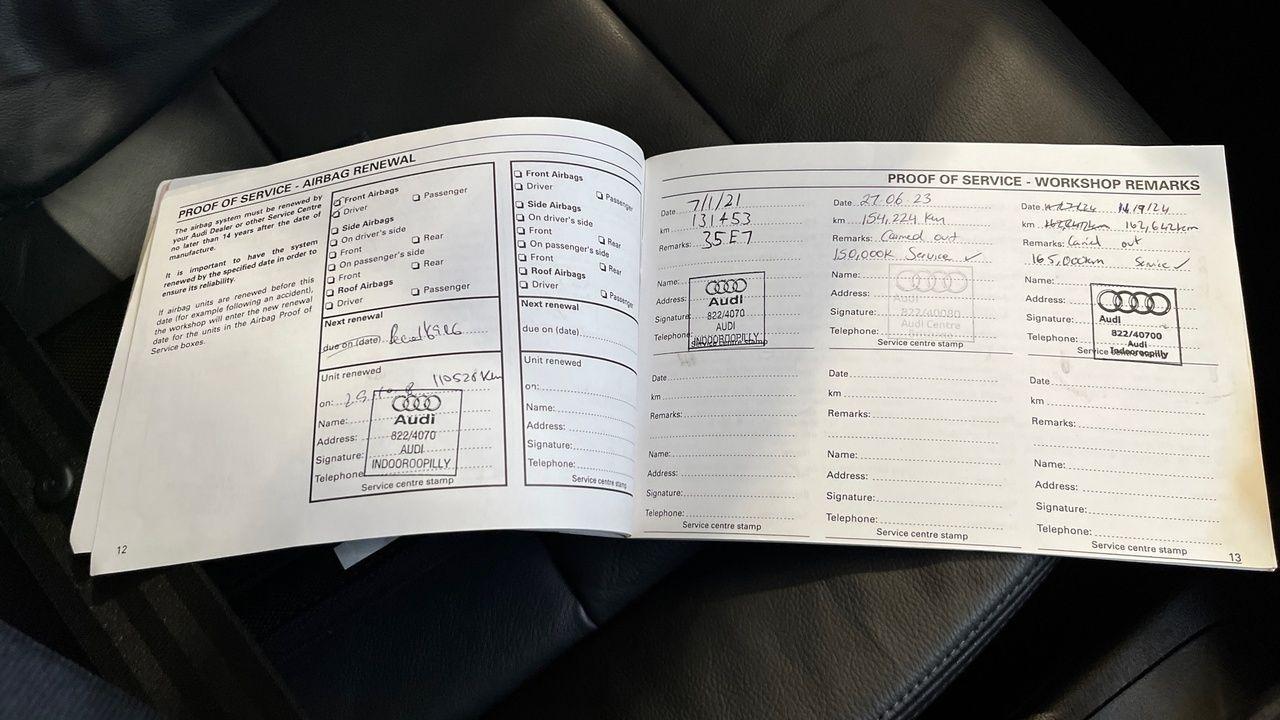 PROOF OF SERVICE - AIRBAG RENEWAL
The airbag system must be renewed by
your Audi Dealer or other Service Centre
no later than 14 years after the date of
manufacture.
It is important to have the system
renewed by the specified date in order to
ensure its reliability.
If airbag units are renewed before this
date (for example following an accident),
the workshop will enter the new renewal
date for the units in the Airbag Proof of
Service boxes.
Front Airbags
Driver
Passenger
Side Airbags
On driver's side
Front
Rear
On passenger's side
Front
Rear
Roof Airbags
Driver
Passenger
Next renewal
due on (date)
Unit renewed
110526 Km
on:
Name:
Address:
Signature:
Telephone
Audi
822/4070
AUDI
INDOOROOPILLY
Service centre stamp
12
Front Airbags
Driver
Passenger
Side Airbags
On driver's side
Front
Rear
On passenger's side
Front
Rear
Roof Airbags
Driver
Passenger
Next renewal
due on (date)
Unit renewed
on:
Name:
Address:
Signature:
Telephone:
Service centre stamp
PROOF OF SERVICE - WORKSHOP REMARKS
Date 7/1/21
km 131453
Remarks: 35E7
Name:
Address:
Signature
Telephone
Audi
822/4070
AUDI
INDOOROOPILLY
Service centre stamp
Date
km
Remarks:
Name:
Address:
Signature:
Telephone:
Service centre stamp
Date 27.06.23
km 154,224 Km
Remarks: Carried out
150,000K Service ✓
Name:
Address:
Signature:
Telephone:
Audi
822/40080
Audi Centre
Service centre stamp
Date
km
Remarks:
Name:
Address:
Signature:
Telephone:
Service centre stamp
Date 14/9/24
km 162,642km
Remarks: Carried out
165,000km Service ✓
Name:
Address:
Signature:
Telephone
Audi
822/40700
Audi
Indooroopilly
Service centre stamp
Date
km
Remarks:
Name:
Address:
Signature:
Telephone:
Service centre stamp
13